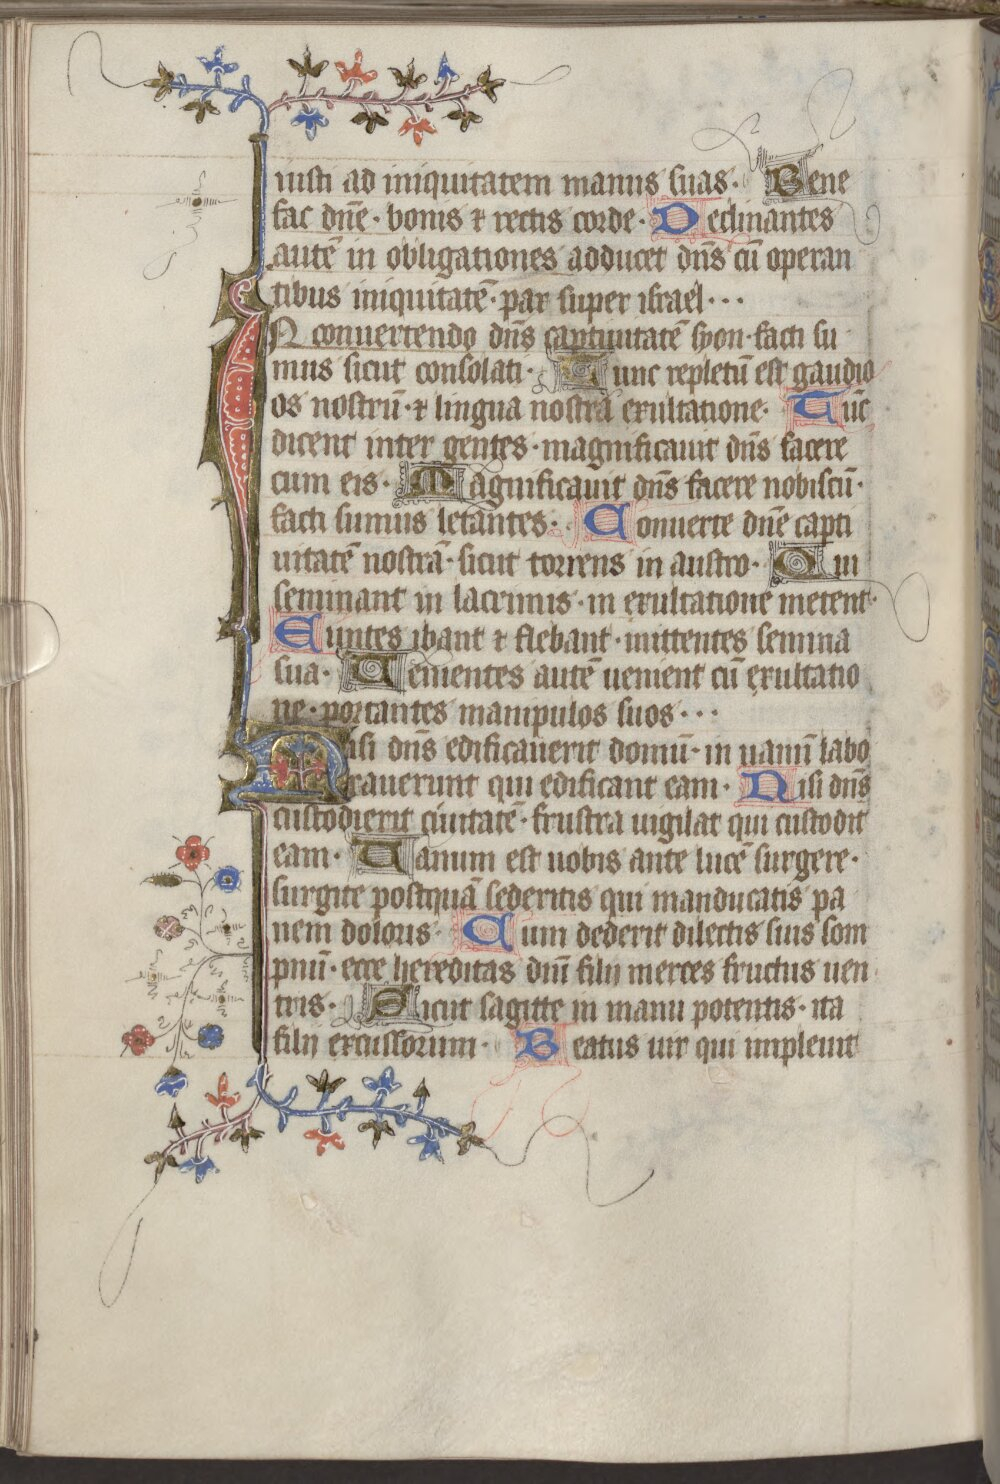 iusti ad iniquitatem manus suas· Bene
fac dn̄e· bonis ⁊ rectis corde· Declinantes
autē in obligationes adducet dn̄s cū operan
tibus iniquitatē· pax super israel···
IN conuertendo dn̄s captiuitatē syon· facti su
mus sicut consolati· Tunc repletū est gaudio
os nostrū· ⁊ lingua nostra exultatione· Tūc
dicent inter gentes· magnificauit dn̄s facere
cum eis· Magnificauit dn̄s facere nobiscū·
facti sumus letantes· Conuerte dn̄e capti
uitatē nostrā· sicut torrens in austro· Qui
seminant in lacrimis· in exultatione metent·
Euntes ibant ⁊ flebant· mittentes semina
sua· Uenientes autē uenient cū exultatio
ne· portantes manipulos suos···
Nisi dn̄s edificauerit domū· in uanū labo
rauerunt qui edificant eam· Nisi dn̄s
custodierit ciuitatē· frustra uigilat qui custodit
eam· Uanum est uobis ante lucē surgere·
surgite postquā sederitis qui manducatis pa
nem doloris· Cum dederit dilectis suis som
pnū· ecce hereditas dn̄i filij merces fructus uen
tris· Sicut sagitte in manu potentis· ita
filij excussorum· Beatus uir qui impleuit